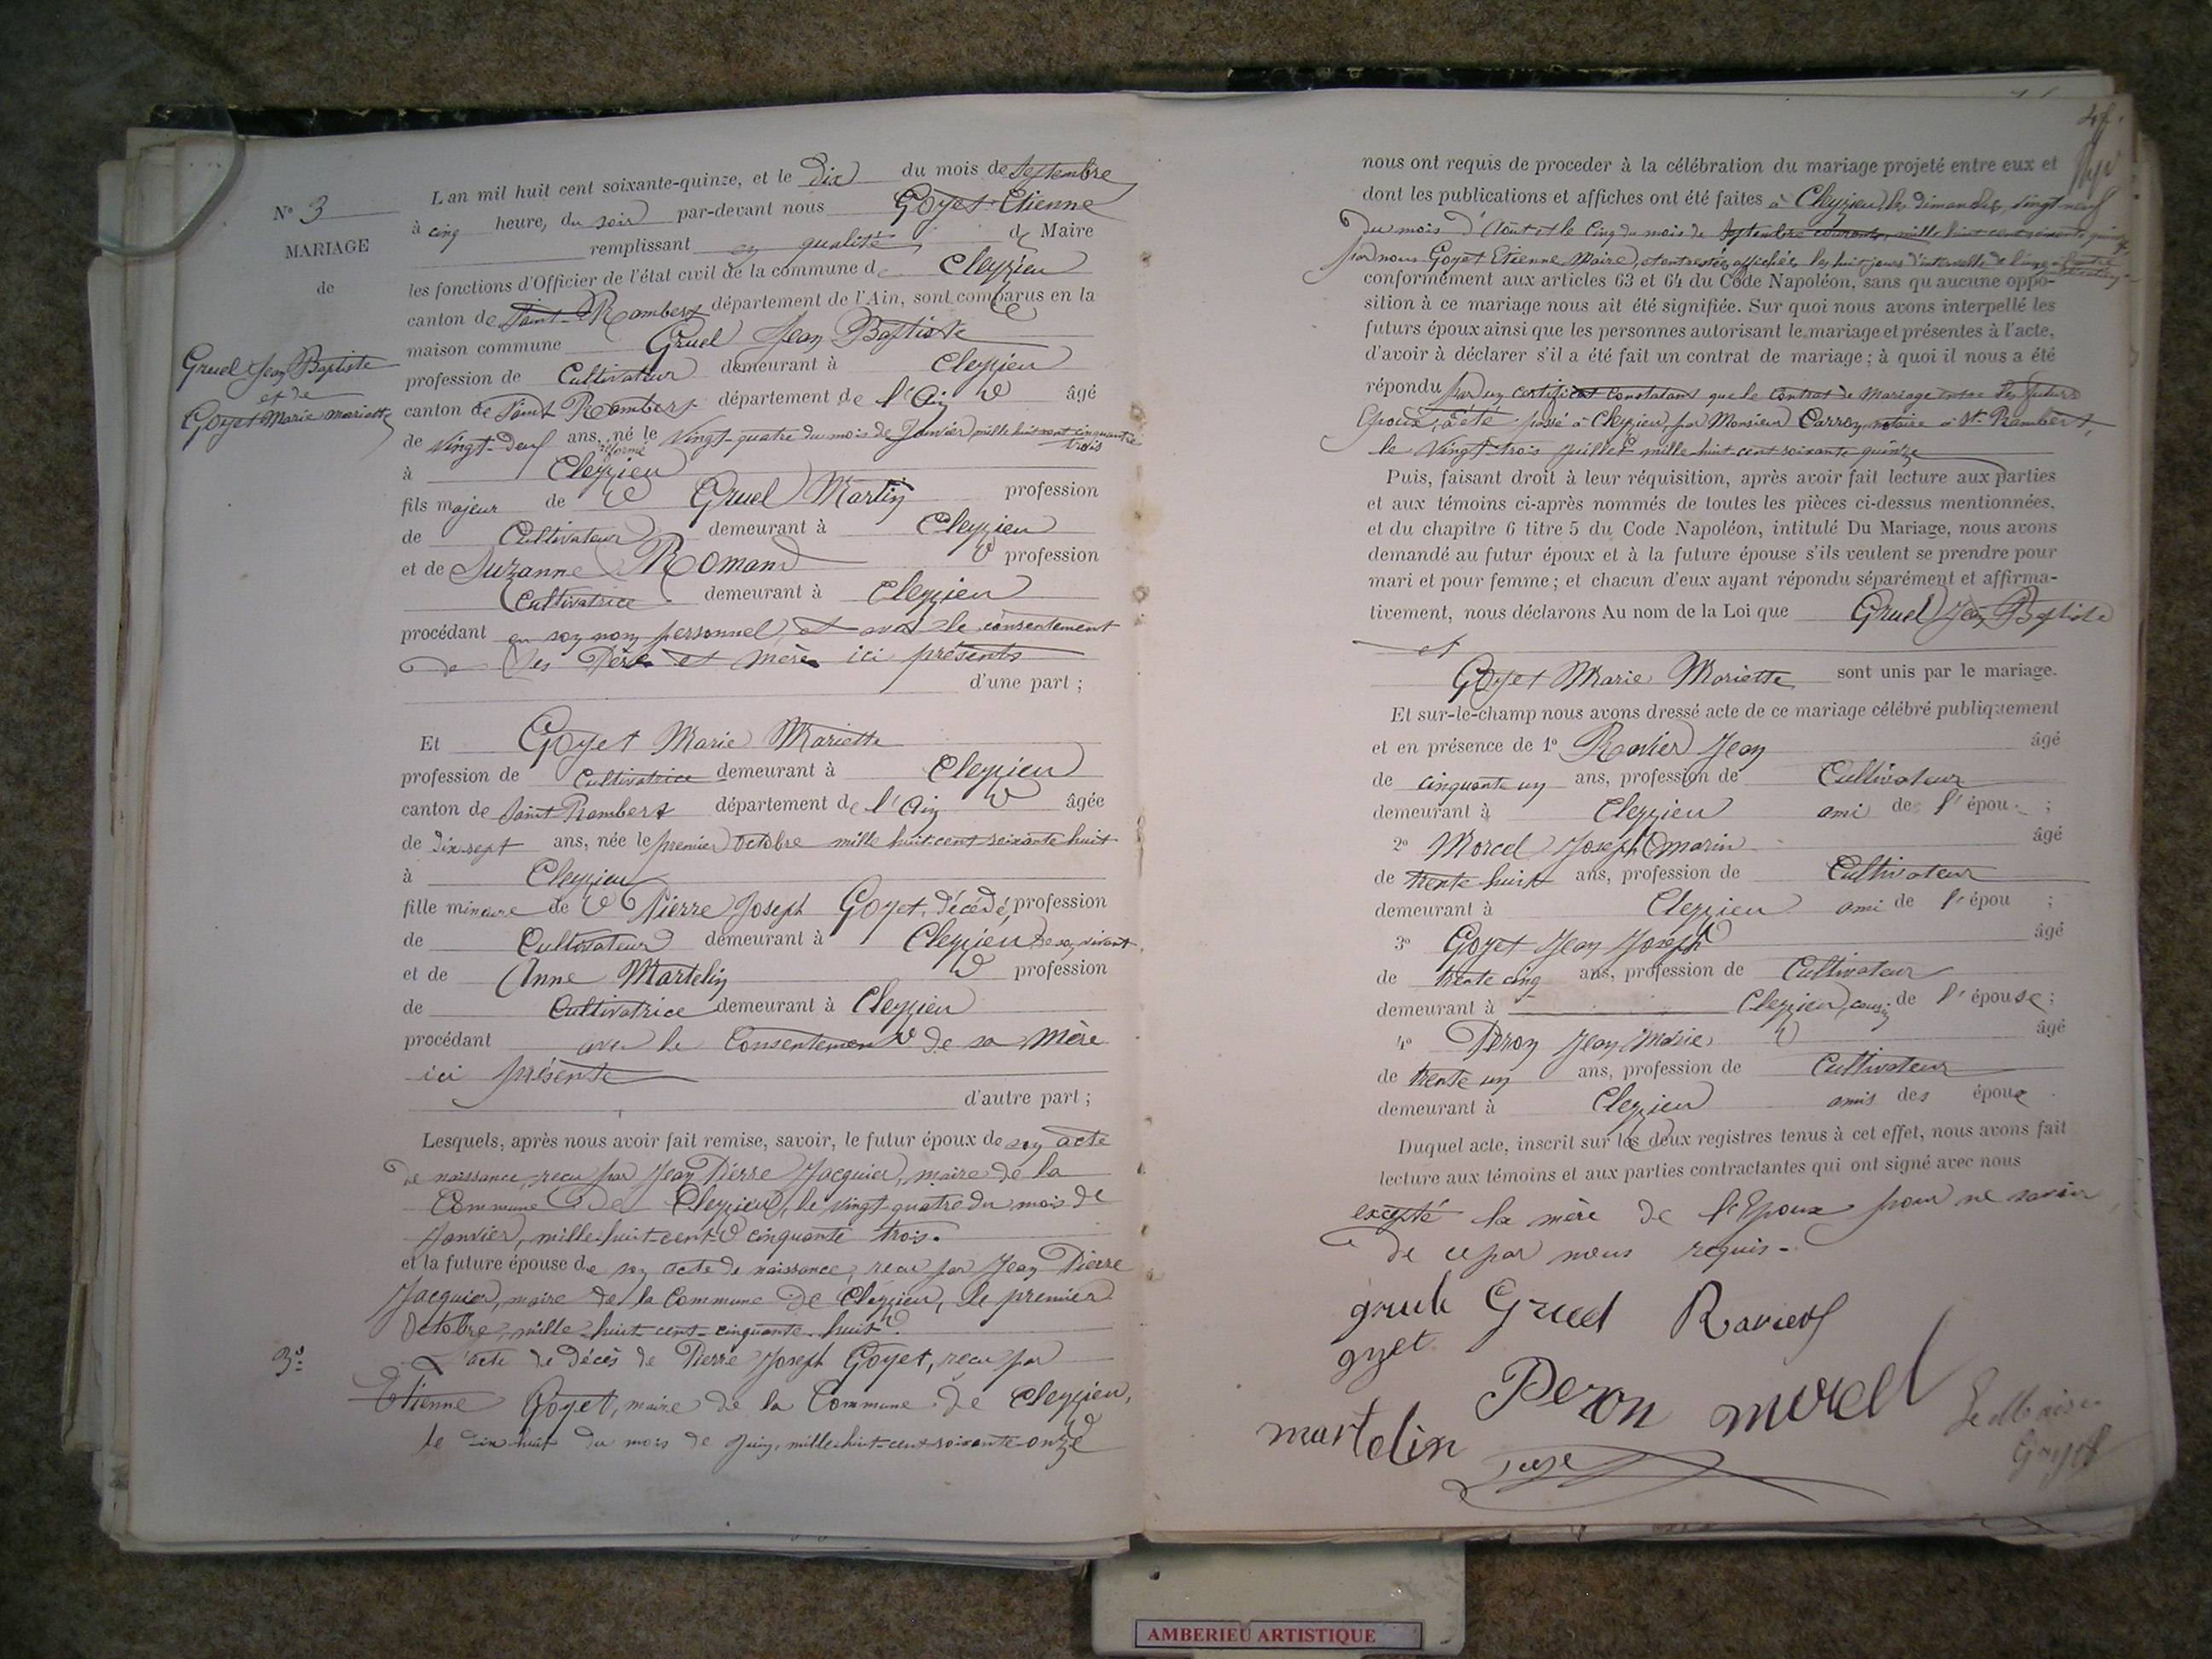 N° 3
MARIAGE
de
Gruel Jean Baptiste
et de
Goyet Marie Mariette
L'an mil huit cent soixante-quinze, et le Dix du mois de Septembre
à cinq heure, du soir par-devant nous Goyet Etienne
remplissant en qualité de Maire
les fonctions d'Officier de l'état civil de la commune de Cleyzieu
canton de Saint-Rambert département de l'Ain, sont comparus en la
maison commune Gruel Jean Baptiste
profession de Cultivateur demeurant à Cleyzieu
canton de Saint Rambert département de l'Ain âgé
de Vingt-deux ans, né le Vingt-quatre du mois de Janvier mille huit cent cinquante
réformé trois
à Cleyzieu
fils majeur de Gruel Martin profession
de Cultivateur demeurant à Cleyzieu
et de Suzanne Romand profession
Cultivatrice demeurant à Cleyzieu
procédant en son nom personnel, et avec le consentement
de ses Père et mère ici présents
d'une part ;
Et Goyet Marie Mariette
profession de Cultivatrice demeurant à Cleyzieu
canton de Saint Rambert département de l'Ain âgée
de dix-sept ans, née le premier Octobre mille huit cent soixante huit
à Cleyzieu
fille mineure de Pierre Joseph Goyet, décédé, profession
de Cultivateur demeurant à Cleyzieu de son vivant
et de Anne Martelin profession
de Cultivatrice demeurant à Cleyzieu
procédant avec le Consentement de sa Mère
ici présente
d'autre part ;
Lesquels, après nous avoir fait remise, savoir, le futur époux de son acte
de naissance, recu par Jean Pierre Jacquier, maire de la
Commune de Cleyzieu, le vingt quatre du mois de
Janvier, mille huit-cent cinquante trois.
et la future épouse de son acte de naissance, recu par Jean Pierre
Jacquier, maire de la Commune de Cleyzieu, le premier
Octobre, mille huit cent cinquante huit.
3°
L'acte de Décès de Pierre Joseph Goyet, recu par
Etienne Goyet, maire de la Commune de Cleyzieu,
le dix huit du mois de Juin, mille huit-cent soixante onze
nous ont requis de proceder à la célébration du mariage projeté entre eux et
dont les publications et affiches ont été faites à Cleyzieu, les dimanches, vingt neuf
du mois d'Août et le Cinq du mois de Septembre courant, mille huit cent soixante quinze
par nous Goyet Etienne Maire, et ont restées affichées les huit jours d'intervalle de l'une à l'autre
publication
conformément aux articles 63 et 64 du Code Napoléon, sans qu'aucune oppo-
sition à ce mariage nous ait été signifiée. Sur quoi nous avons interpellé les
futurs époux ainsi que les personnes autorisant le mariage et présentes à l'acte,
d'avoir à déclarer s'il a été fait un contrat de mariage ; à quoi il nous a été
répondu par un certificat Constatant que le Contrat de Mariage entre les futurs
Epoux, a été passé à Cleyzieu, par Monsieur Carron, notaire à St Rambert,
le Vingt-trois juillet mille huit cent soixante quinze
Puis, faisant droit à leur réquisition, après avoir fait lecture aux parties
et aux témoins ci-après nommés de toutes les pièces ci-dessus mentionnées,
et du chapitre 6 titre 5 du Code Napoléon, intitulé Du Mariage, nous avons
demandé au futur époux et à la future épouse s'ils veulent se prendre pour
mari et pour femme ; et chacun d'eux ayant répondu séparément et affirma-
tivement, nous déclarons Au nom de la Loi que Gruel Jean Baptiste
et
Goyet Marie Mariette sont unis par le mariage.
Et sur-le-champ nous avons dressé acte de ce mariage célébré publiquement
et en présence de 1° Ravier Jean âgé
de cinquante un ans, profession de Cultivateur
demeurant à Cleyzieu ami de l'épou ;
2° Morcel Joseph Marin âgé
de trente huit ans, profession de Cultivateur
demeurant à Cleyzieu ami de l'épou ;
3° Goyet Jean Joseph âgé
de trente cinq ans, profession de Cultivateur
demeurant à Cleyzieu, cousin de l'épouse ;
4° Peron Jean Marie âgé
de trente un ans, profession de Cultivateur
demeurant à Cleyzieu amis des époux
Duquel acte, inscrit sur les deux registres tenus à cet effet, nous avons fait
lecture aux témoins et aux parties contractantes qui ont signé avec nous
excepté la mère de l'Epoux pour ne savoir
de ce par nous requis.
gruel Gruel Ravier
gyet
Peron morcel
martelin
Le Maire
Goyet
AMBERIEU ARTISTIQUE